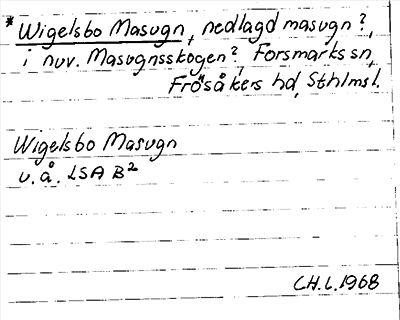 * Wigelsbo Masugn, nedlagd masugn?,
i nuv. Masugnsskogen?, Forsmarks sn,
Frösåkers hd, Sthlms l.
Wigelsbo Masugn
u.å. LSA B²
C.H.L. 1968